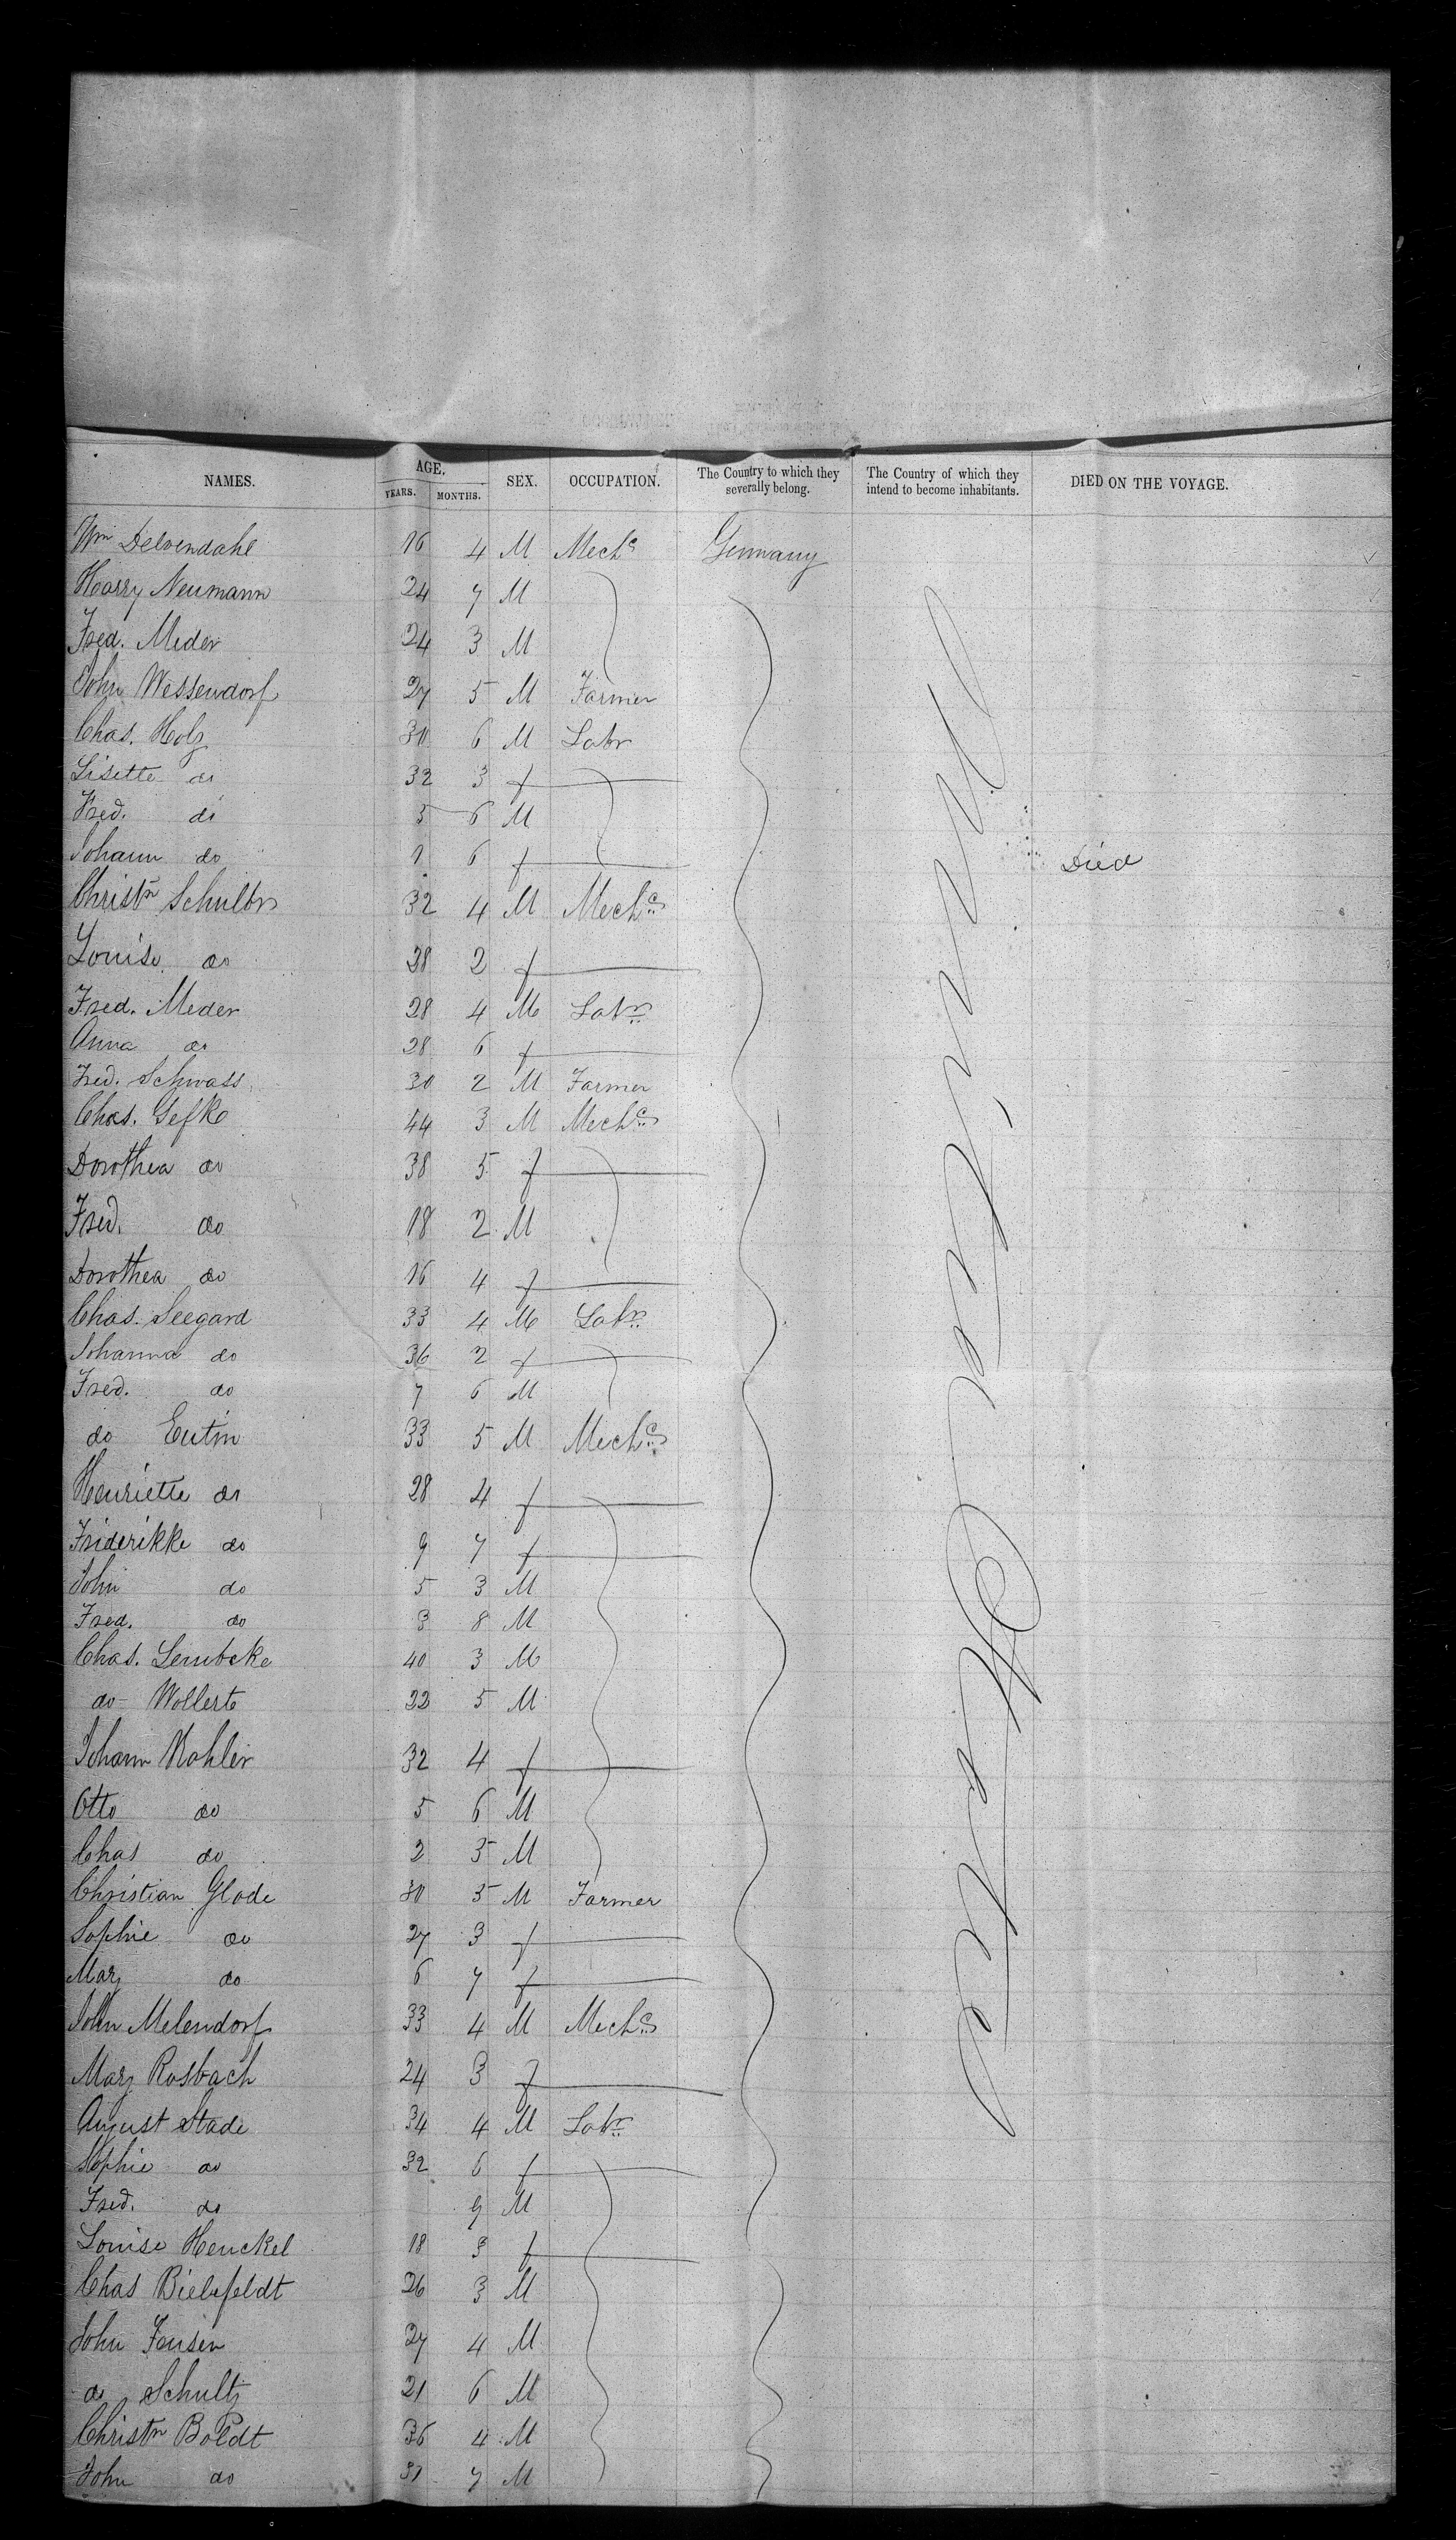 NAMES. AGE. YEARS. MONTHS. SEX. OCCUPATION. The Country to which they severally belong. The Country of which they intend to become inhabitants. DIED ON THE VOYAGE.
Wm Delvendahl 16 4 M Mechc Germany
Harry Neumann 24 7 M
Fred. Meder 24 3 M
John Wessendorf 27 5 M Farmer
Chas. Holz 30 6 M Labr
Lisette do 32 3 f
Fred. do 5 6 M
Johann do 1 6 f Died
Christn Schultz 32 4 M Mechc
Louise do 28 2 f
Fred. Meder 28 4 M Labr
Anna do 28 6 f
Fred. Schwass 30 2 M Farmer
Chas. Gefke 44 3 M Mechc
Dorothea do 38 5 f
Fred. do 18 2 M
Dorothea do 16 4 f
Chas. Seegard 33 4 M Labr
Johanna do 36 2 f
Fred. do 7 6 M
do Eutin 33 5 M Mechc
Henriette do 28 4 f
Friderikke do 9 7 f
John do 5 3 M
Fred. do 3 8 M
Chas. Lembcke 40 3 M
do Wollert 22 5 M
Johann Kohler 32 4 f
Otto do 5 6 M
Chas do 2 5 M
Christian Glode 30 5 M Farmer
Sophie do 27 3 f
Mary do 6 7 f
John Melendorf 33 4 M Mechc
Mary Rosbach 24 3 f
August Stade 34 4 M Labr
Sophie do 32 6 f
Fred. do 9 M
Louise Henckel 18 3 f
Chas Bielefeldt 26 3 M
John Jensen 27 4 M
do Schultz 21 6 M
Christn Boldt 36 4 M
John do 31 7 M
United States of America